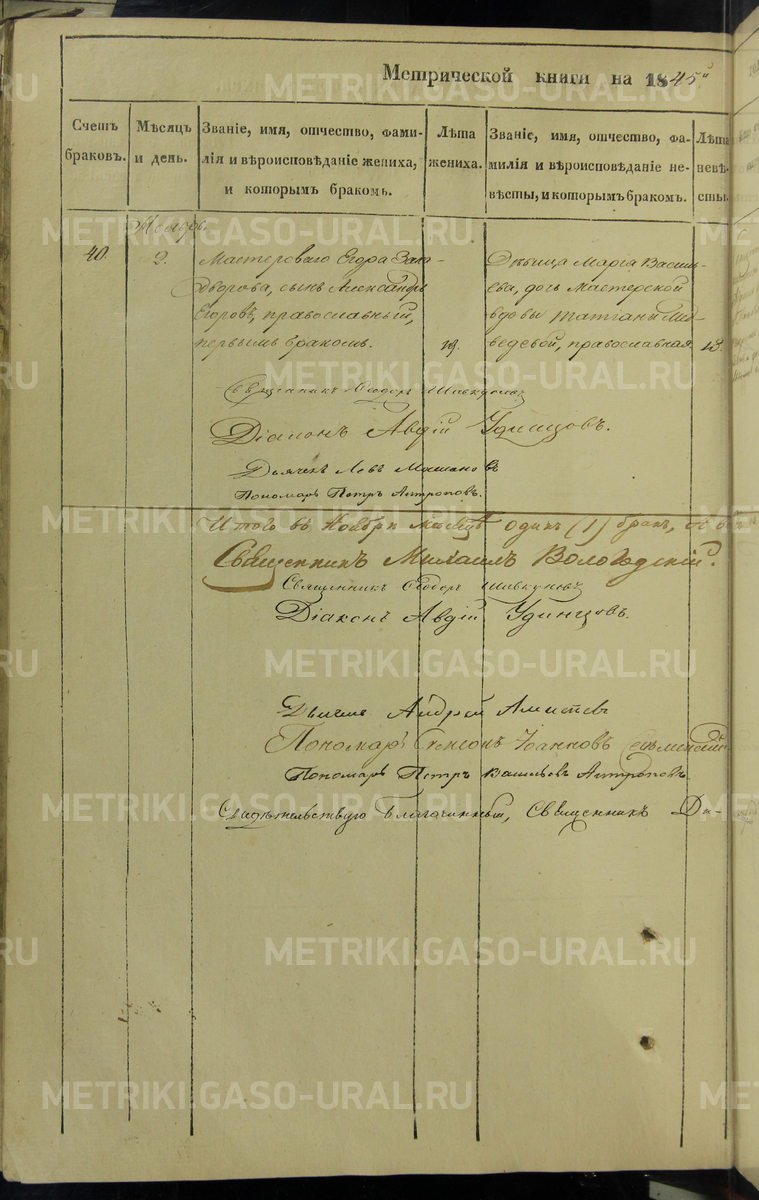 Метрической книги на 1845й
Счетъ браковъ.
Мѣсяцъ и день.
Званіе, имя, отчество, фами-
лія и вѣроисповѣданіе жениха,
и которымъ бракомъ.
Лѣта
жениха.
Званіе, имя, отчество, фа-
милія и вѣроисповѣданіе не-
вѣсты, и которымъ бракомъ.
Лѣта
невѣ-
сты.
Ноябрь.
40.
2.
Мастероваго Егора
сынъ Александръ
Егоровъ, православный,
первымъ бракомъ.
19.
Дѣвица Марѳа Василь-
ева, дочь мастерской
вдовы Татіаны Мед-
ведевой, православная.
18.
Священникъ Ѳеодоръ
Діаконъ Авдій Удинцовъ.
Дьячекъ Левъ
Пономарь Петръ Антроповъ.
Итого въ Ноябрѣ месяцѣ одинъ (1) бракъ,
Священникъ Михаилъ Вологодскій.
Священникъ Ѳеодоръ
Діаконъ Авдій Удинцовъ.
Андрей
Пономарь
Пономарь Петръ Васильевъ Антроповъ
Свидѣтельствую Благочинный, Священникъ Ди-
METRIKI.GASO-URAL.RU